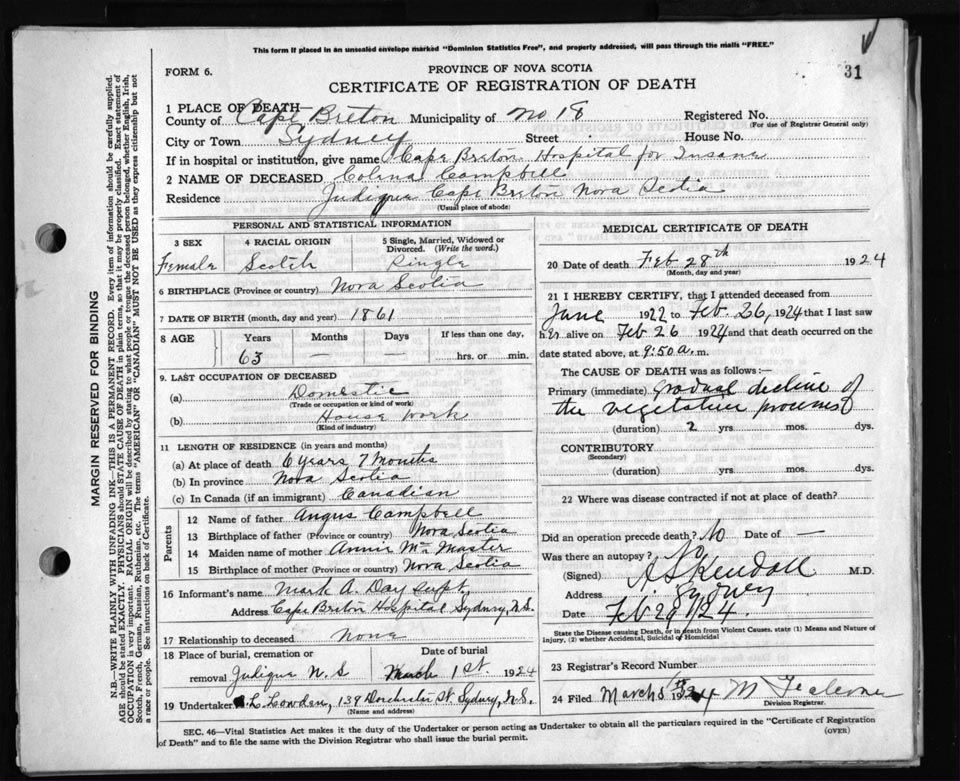 This form if placed in an unsealed envelope marked "Dominion Statistics Free", and properly addressed, will pass through the mails "FREE."
31
FORM 6.
PROVINCE OF NOVA SCOTIA
CERTIFICATE OF REGISTRATION OF DEATH
1 PLACE OF DEATH—
County of Cape Breton Municipality of No 18 Registered No.
(For use of Registrar General only)
City or Town Sydney Street House No.
If in hospital or institution, give name Cape Breton Hospital for Insane
2 NAME OF DECEASED Colena Campbell
Residence Judique Cape Breton Nova Scotia
(Usual place of abode)
PERSONAL AND STATISTICAL INFORMATION
3 SEX 4 RACIAL ORIGIN 5 Single, Married, Widowed or Divorced. (Write the word.)
Female Scotch Single
6 BIRTHPLACE (Province or country) Nova Scotia
7 DATE OF BIRTH (month, day and year) 1861
8 AGE Years Months Days If less than one day,
63 — — hrs. or min.
9. LAST OCCUPATION OF DECEASED
(a) Domestic
(Trade or occupation or kind of work)
(b) House work
(Kind of industry)
11 LENGTH OF RESIDENCE (in years and months)
(a) At place of death 6 years 7 Months
(b) In province Nova Scotia
(c) In Canada (if an immigrant) Canadian
Parents
12 Name of father Angus Campbell
13 Birthplace of father (Province or country) Nova Scotia
14 Maiden name of mother Annie McMaster
15 Birthplace of mother (Province or country) Nova Scotia
16 Informant's name Mark A. Day supt.
Address Cape Breton Hospital Sydney, N.S.
17 Relationship to deceased None
18 Place of burial, cremation or removal Judique N.S Date of burial March 1st. 1924
19 Undertaker A. L. Lowden, 139 Dorchester St. Sydney, N.S.
(Name and address)
MEDICAL CERTIFICATE OF DEATH
20 Date of death Feb 28th 1924
(Month, day and year)
21 I HEREBY CERTIFY, that I attended deceased from
June 1922 to Feb 26, 1924 that I last saw
her alive on Feb 26 1924 and that death occurred on
date stated above, at 9:50 a. m.
The CAUSE OF DEATH was as follows:—
Primary (immediate) gradual decline of
the vegetative processes
(duration) 2 yrs. mos. dys.
CONTRIBUTORY
(Secondary)
(duration) yrs. mos. dys.
22 Where was disease contracted if not at place of death?
Did an operation precede death? No Date of —
Was there an autopsy? No
(Signed) A S Kendall M.D.
Address Sydney
Date Feb 29/24.
State the Disease causing Death, or in death from Violent Causes, state (1) Means and Nature of
Injury, (2) whether Accidental, Suicidal or Homicidal
23 Registrar's Record Number
24 Filed March 5th
Division Registrar.
SEC. 46—Vital Statistics Act makes it the duty of the Undertaker or person acting as Undertaker to obtain all the particulars required in the "Certificate of Registration
of Death" and to file the same with the Division Registrar who shall issue the burial permit. (OVER)
MARGIN RESERVED FOR BINDING
N.B.—WRITE PLAINLY WITH UNFADING INK—THIS IS A PERMANENT RECORD. Every item of information should be carefully supplied.
AGE should be stated EXACTLY. PHYSICIANS should STATE CAUSE OF DEATH in plain terms, so that it may be properly classified. Exact statement of
OCCUPATION is very important. RACIAL ORIGIN will be described by stating to what people or tongue the deceased person belonged, whether English, Irish,
Scotch, French, German, Russian, Ruthenian, etc. The terms "AMERICAN" or "CANADIAN" MUST NOT BE USED as they express citizenship but not
a race or people. See instructions on back of Certificate.